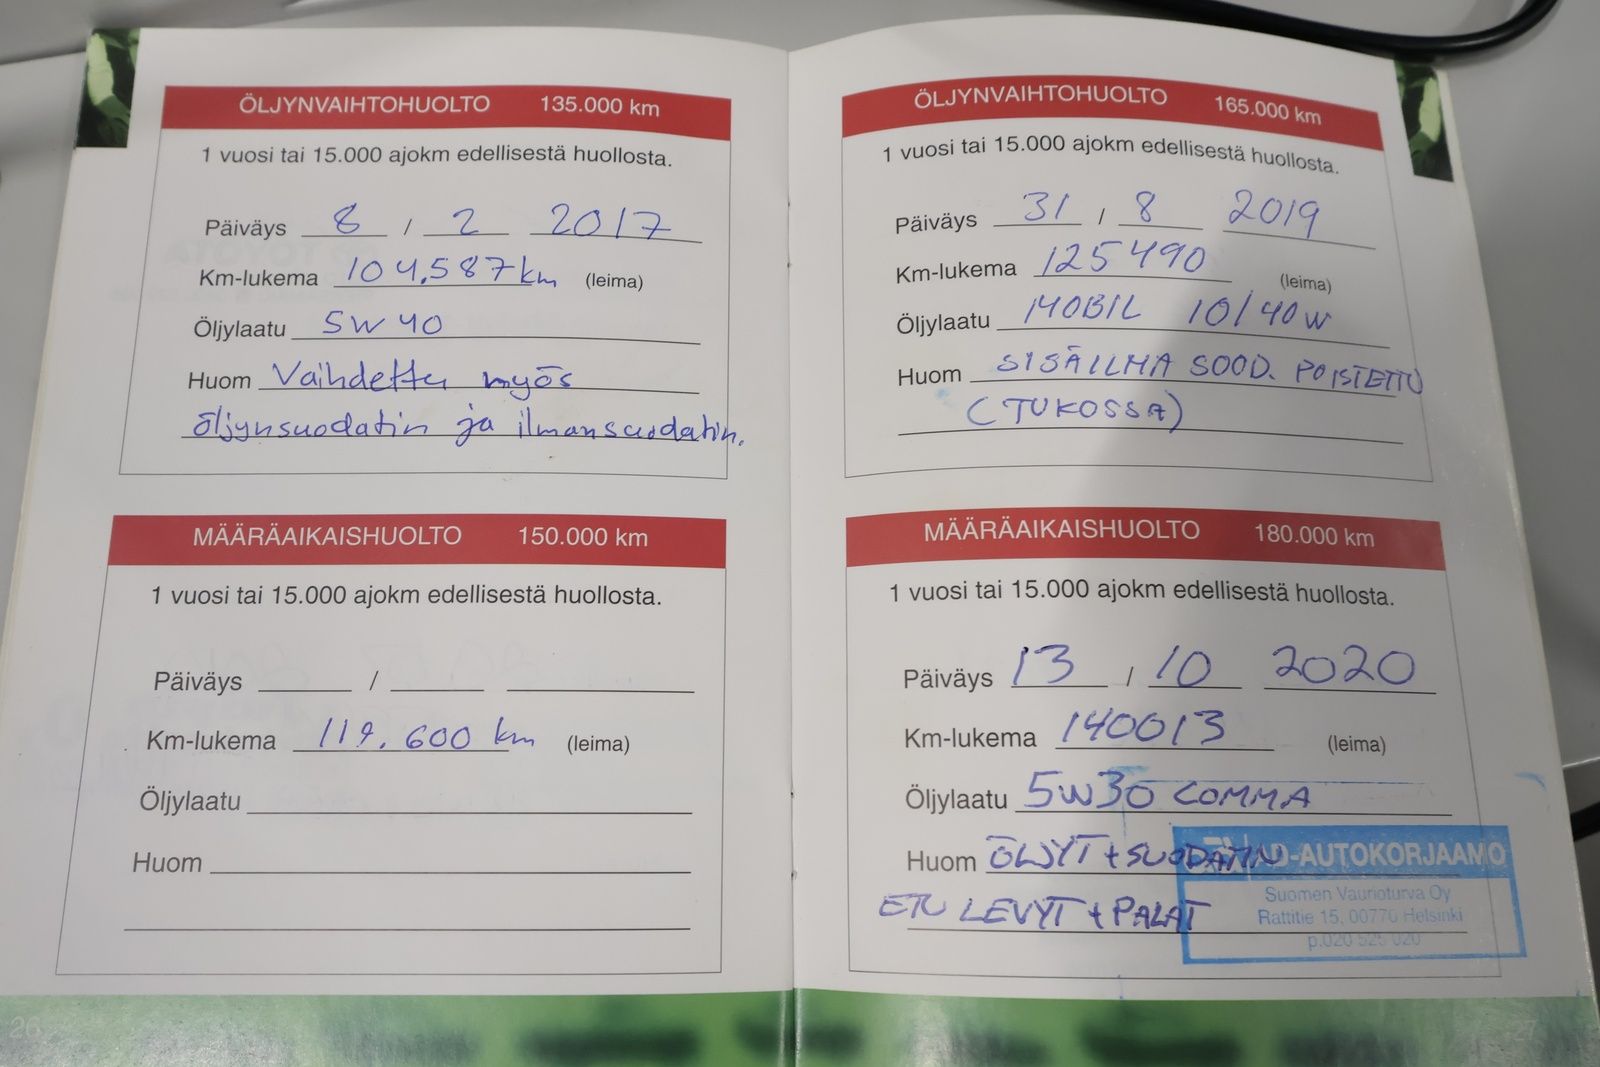 ÖLJYNVAIHTOHUOLTO 135.000 km
1 vuosi tai 15.000 ajokm edellisestä huollosta.
Päiväys 8 / 2 2017
Km-lukema 104.587 km (leima)
Öljylaatu 5W40
Huom Vaihdettu myös
öljynsuodatin ja ilmansuodatin.
MÄÄRÄAIKAISHUOLTO 150.000 km
1 vuosi tai 15.000 ajokm edellisestä huollosta.
Päiväys /
Km-lukema 119.600 km (leima)
Öljylaatu
Huom
26
ÖLJYNVAIHTOHUOLTO 165.000 km
1 vuosi tai 15.000 ajokm edellisestä huollosta.
Päiväys 31 / 8 2019
Km-lukema 125490 (leima)
Öljylaatu MOBIL 10/40W
Huom SISÄILMA SOOD. POISTETTU
(TUKOSSA)
MÄÄRÄAIKAISHUOLTO 180.000 km
1 vuosi tai 15.000 ajokm edellisestä huollosta.
Päiväys 13 / 10 2020
Km-lukema 140013 (leima)
Öljylaatu 5W30 COMMA
Huom ÖLJYT + SUODATIN
ETU LEVYT + PALAT
AD-AUTOKORJAAMO
Suomen Vaurioturva Oy
Rattitie 15, 00770 Helsinki
p.020 525 020
27